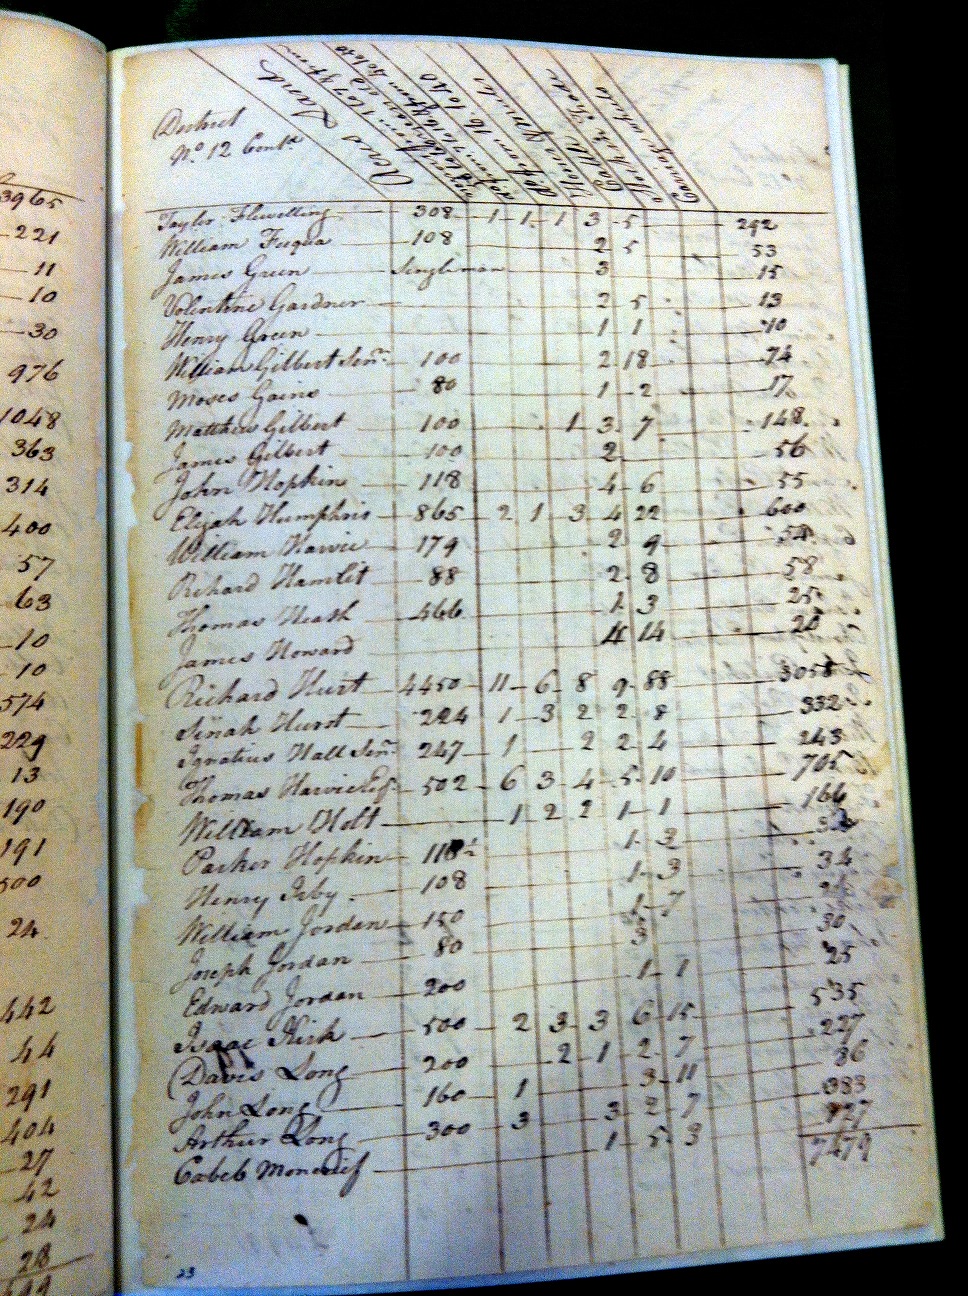 3965
221
11
10
30
976
1048
363
314
400
57
63
10
10
574
229
13
190
191
500
24
442
44
291
404
27
42
24
28
District
No. 12 Contd
Acres Land
Taylor Flewelling 308 1 1 1 3 5 292
William Fuqua 108 2 5 53
James Green Single man 3 15
Volentine Gardner 2 5 13
Henry Green 1 1 10
William Gilbert Senr. 100 2 18 74
Moses Gains 80 1 2 17
Matthew Gilbert 100 1 3 7 148
James Gilbert 100 2 56
John Hopkin 118 4 6 55
Elijah Humphris 865 2 1 3 4 22 600
William Harvie 179 2 9 54
Richard Hamlet 88 2 8 58
Thomas Heath 466 1 3 25
James Howard 4 14
Richard Hurt 4450 11 6 8 9 88 3058
Hurt 224 1 3 2 2 8 332
Ignatius Hall Senr. 247 1 2 2 4 243
Thomas Harvie Esqr. 502 6 3 4 5 10 705
William Holt 1 2 2 1 1 166
Parker Hopkin 118 1 3
Henry Irby 108 1 3 34
William Jordan 150 1 7
Joseph Jordan 80 3 30
Edward Jordan 200 1 1 25
Isaac Kirk 500 2 3 3 6 15 535
Davis Long 200 2 1 2 7 227
John Long 160 1 3 11 86
Arthur Long 300 3 3 2 7 383
Cabeb Moncrief 1 5 3
7479
23